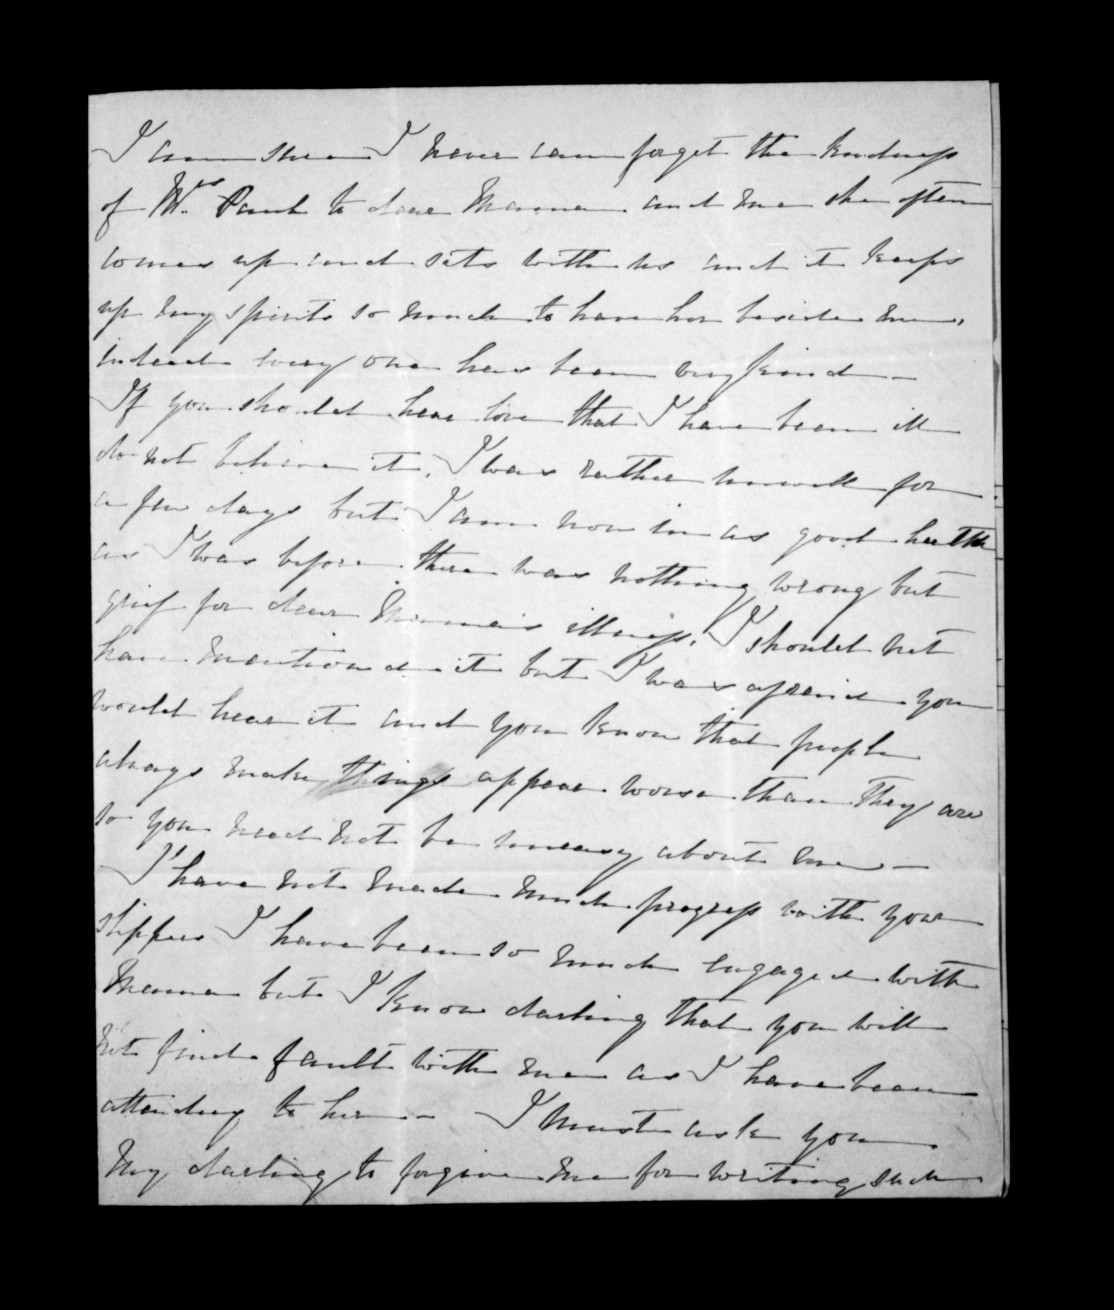 I am sure I never can forget the kindness
of Mrs to dear Mamma and me she often
comes up and sits with us and it keeps
up my spirits so much to have her beside me,
indeed every one has been very kind —
If you should hear that I have been ill
do not believe it, I was rather unwell for
a few days but I am now in as good health
as I was before there was nothing wrong but
grief for dear Mamma's illness. I should not
have mentioned it but I was afraid you
would hear it and you know that people
always make things appear worse than they are
so you need not be uneasy about me —
I have not made much progress with your
slippers I have been so much engaged with
Mamma but I know darling that you will
not find fault with me as I have been
attending to her — I must ask you
my darling to forgive me for writing such